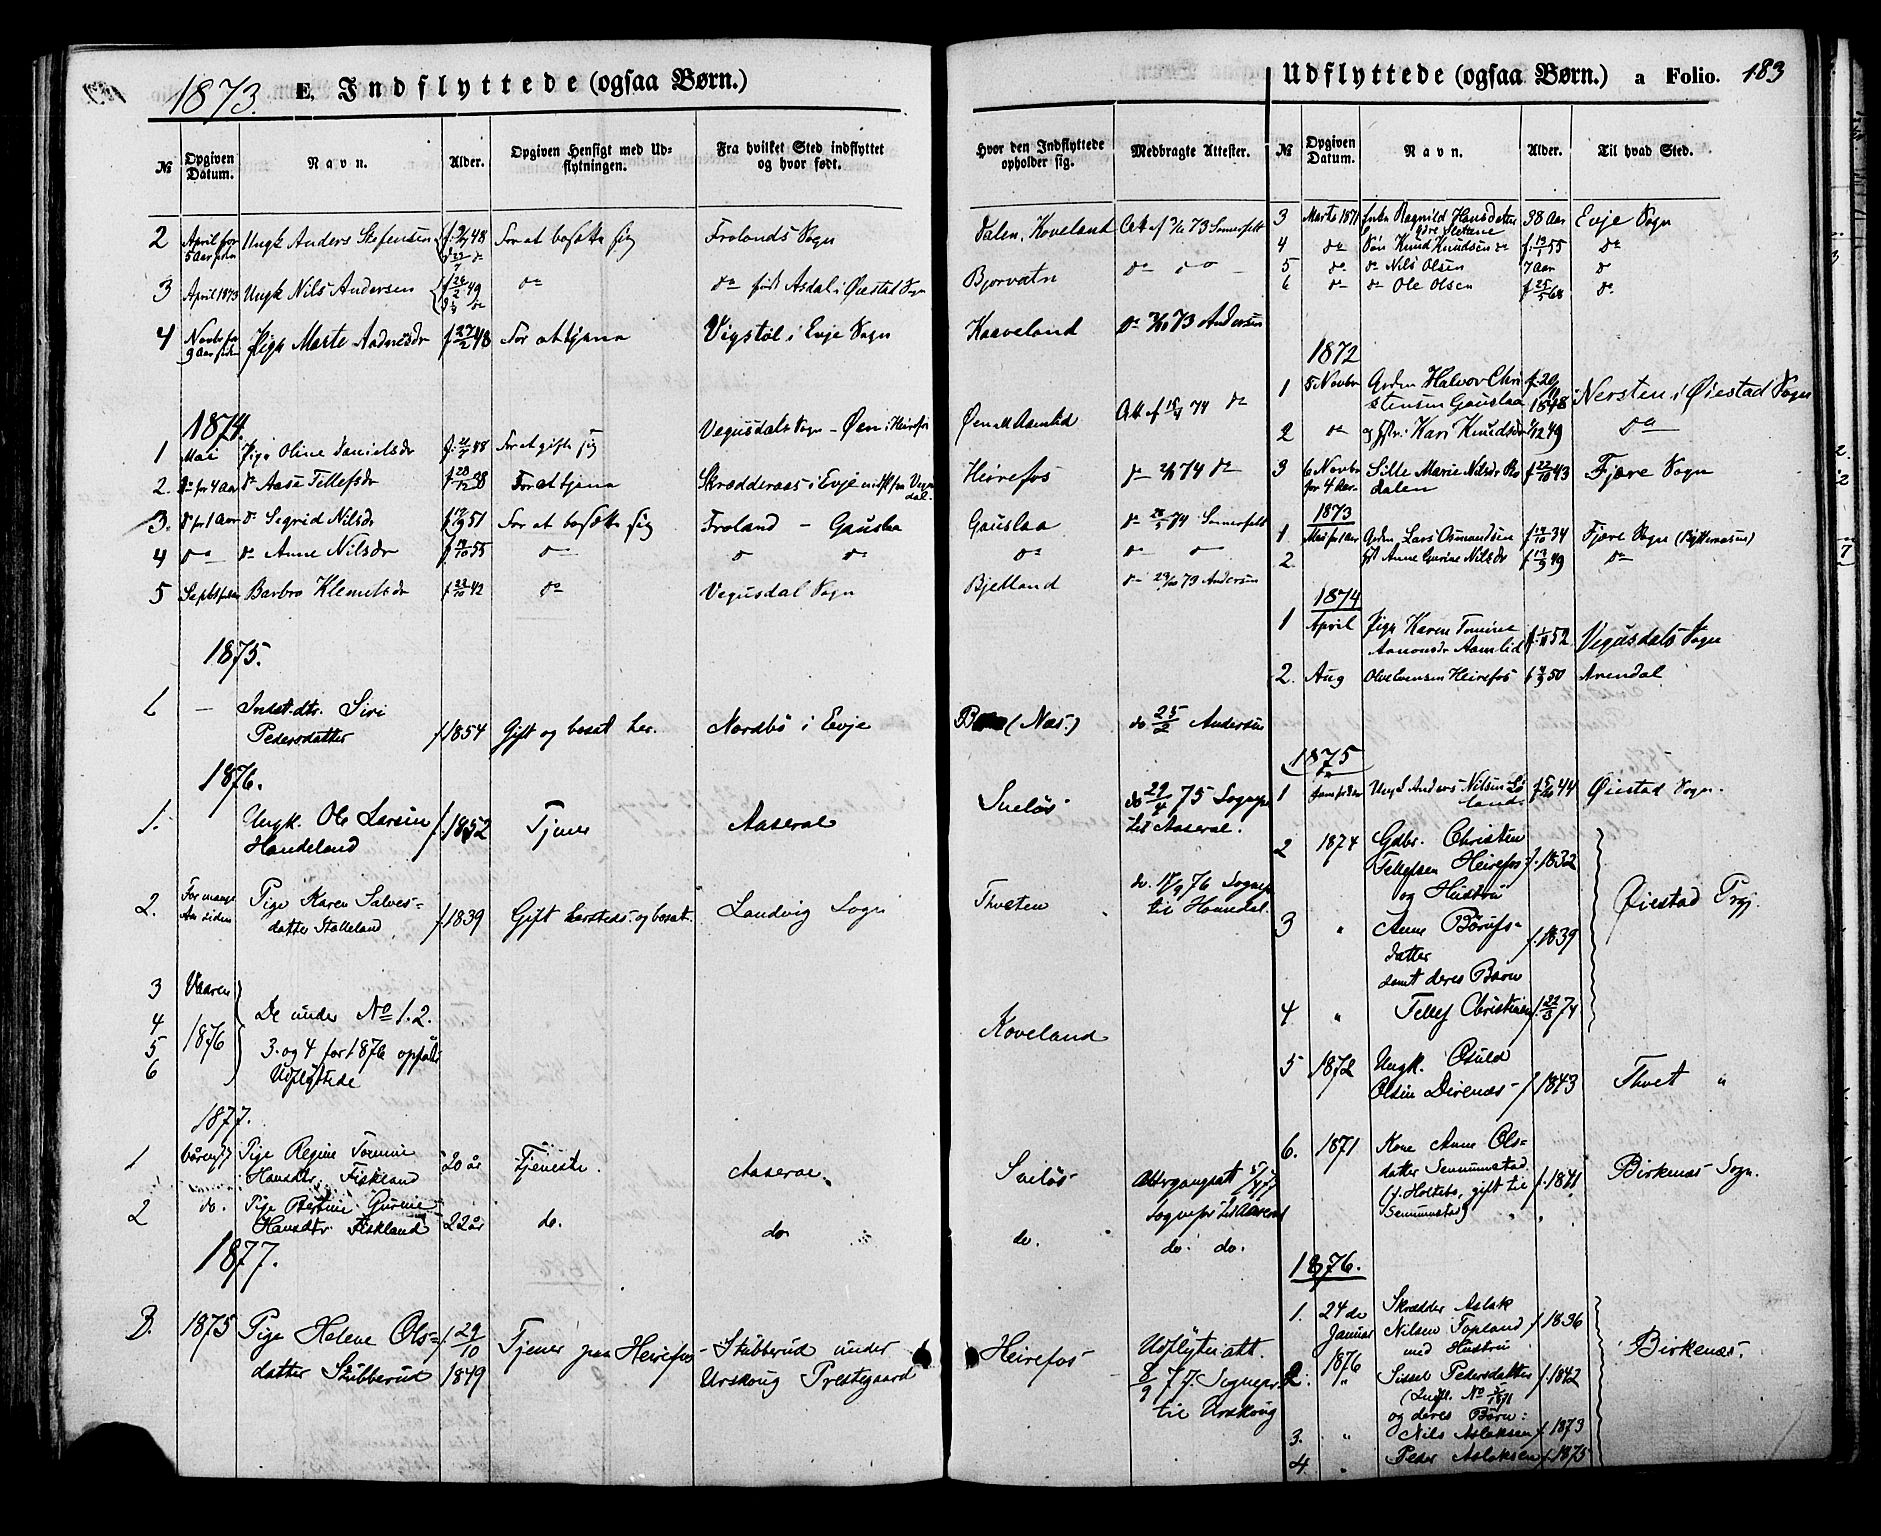 1873. E. Indflyttede (ogsaa Børn.)
№ Opgiven Datum. Navn. Alder. Opgiven Hensigt med Udflytningen. Fra hvilket Sted indflyttet og hvor født.
2 April for 5 Aar siden Ungk Anders Stefensen For at bosætte sig Frolands Sogn
3 April 1873 Ungk Nils Andersen do do født Asdal i Øiestad Sogn
4 Novbr for 9 Aar siden Pige Marte Aadnesdr f 27/2 48 For at tjene Vigstøl i Evje Sogn
1874.
1 Mai Pige Oline Danielsdr For at gifte sig Vegusdals Sogn - Øen i Heirefos
2. do for 4 Aar do Aase Tellefsdr f 28/12 38 For at tjene Skrædderaas i Evje
3. do for 1 Aar do Segrid Nilsdr f 51 For at bosætte sig Froland - Gauslaa
4 do do Anne Nilsdr f. 19/10 55 do do do
5 Barbro Klemetsdr f 42 do Vegusdal Sogn
1875.
1 — Indst.dtr. Siri
Pedersdatter f 1854 Gift og bosat her. Nordbø i Evje
1876.
1. Ungk. Ole Larsen
Handeland f. 1852 Tjener Aaseral
2. For mange Aar siden Pige Karen Salves=
datter Stalleland f 1839 Gift hersteds og bosat. Landvig Sogn
3 Vaaren
4 De under No 1. 2.
5 1876 3. og 4 for 1876 opførte
6 Udflyttede
1877.
1 Våren 77 Pige Regine Tomine
Hansdtr. Fiskland 20 år Tjeneste. Aaseral
2 do. Pige Bertine Gurine
Hansdtr Fiskland 22 år do. do
1877.
3. 1875 Pige Helene Ols=
datter Stubberud f. 29/10 1849 Tjener paa Heirefos Stubberud under
Urskoug Prestegaard
Hvor den Indflyttede opholder sig. Medbragte Attester.
Dalen, Koveland Att af 73 Sommerfelt
Bjorvatn do do
Kaaveland do 73 Andersen
Øen a Aamlid Att af 74 do
Heirefos do 74 do
Gauslaa do 28/5 74 Sommerfelt
do do do
Bjelland do 73 Andersen
(Næs.) do 25/2 Andersen
Sueløs do 29/4 75 Sognepr.
til Aaseral.
Thveten do. 76 Sognepr
til Homedal.
Koveland
Sueløs
Sognepr til Aaseral
do. do. do.
Heirefos Udflytn.att.
8/9 77. Sognepr.
til Urskoug
Udflyttede (ogsaa Børn.) a Folio. 183
№ Opgiven Datum. Navn. Alder. Til hvad Sted.
3 Marts 1871 Enke Ragnild Hansdatter 38 Aar Evje Sogn
4 do Søn Knud Knudsen do f. 55 do
5 do do Nils Olsen 7 Aar do
6 do do Ole Olsen f 25/5 68 do
1872
1 5 Novbr Grdm Halvor Chri
stensen Gauslaa 1848 Nersten i Øiestad Sogn
2 do og Hstr. Kari Knudsdr 49 do
3 6 Novbr for 4 Aar. Sille Marie Nilsdr Ro
dalen f 22/10 43 Fjære Sogn
1873
1 Grdm Lars Osmundsen f 34 Fjære Sogn
2. Anne Gurine Nilsdr f 49 do
1874
1 April Pige Karen Tomine
Aanonsdr Aamlid 52 Vegusdals Sogn
2. Aug Heirefos f 50 Arendal
1875
1 Ungk Anders Nilsen
land. 44 Øiestad Sogn.
2 1874 Gdbr. Christen
Tellefsen Heirefos f. 1832
og Hustru Øiestad Prgj.
3 " Anne Børufs=
datter f. 1839
samt deres Barn
4 " Tellef Christensen f. 22/3 74
5 1872 Ungk. Osuld
Olsen Direnæs f 1843 Thvet "
6. 1871 Kone Anne Ols=
datter Senumstad
(f. Holtebø, gift til f. 1841 Birkenæs Sogn.
Senumstad)
1876.
1. 24 de Januar 1876 Skrædder Aslak
Nilsen Topland f. 1836
med Hustru Birkenæs.
2. " Sissel Pedersdatter f. 1842
og deres Børn:
3. " Nils Aslaksen f. 1873
4 " Peder Aslaksen f. 1875